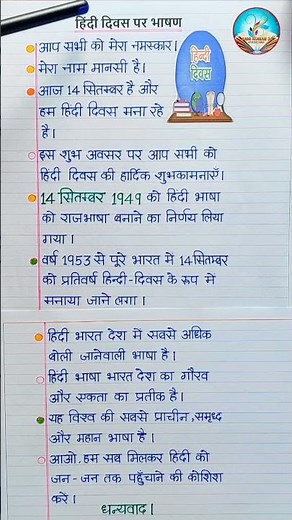 हिंदी दिवस पर भाषण
आप सभी को मेरा नमस्कार।
मेरा नाम मानसी है।
आज 14 सितम्बर है और
हम हिंदी दिवस मना रहे
है।
हिन्दी
दिवस
इस शुभ अवसर पर आप सभी को
हिंदी दिवस की हार्दिक शुभकामनाएँ।
14 सितम्बर 1949 को हिंदी भाषा
को राजभाषा बनाने का निर्णय लिया
गया।
वर्ष 1953 से पूरे भारत में 14 सितम्बर
को प्रतिवर्ष हिन्दी-दिवस के रूप में
मनाया जाने लगा।
हिंदी भारत देश में सबसे अधिक
बोली जानेवाली भाषा है।
हिंदी भाषा भारत देश का गौरव
और एकता का प्रतीक है।
यह विश्व की सबसे प्राचीन, समृध्द
और महान भाषा है।
आओ, हम सब मिलकर हिंदी को
जन-जन तक पहुँचाने की कोशिश
करें।
धन्यवाद।